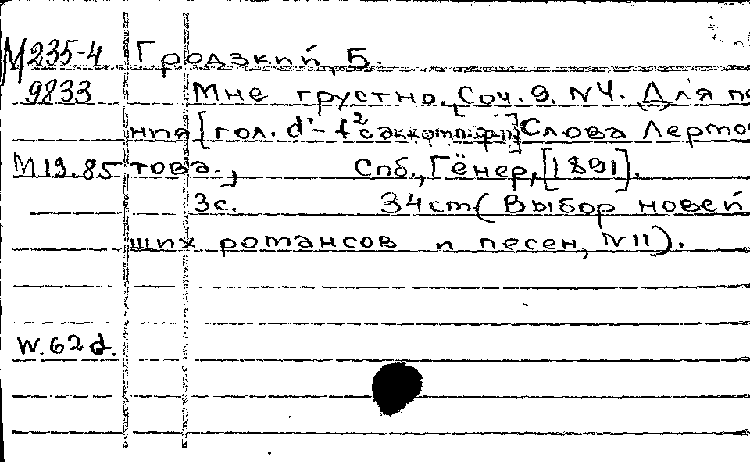 М235-4 Гродзкий, Б.
9833 Мне грустно. Соч. 9. N4. Для пе
ния [гол. d'-f² с аккомп. фп] Слова Лермо
М19.85 това., Спб., Гёнер, [1891].
3с. 34cm (Выбор новей
ших романсов и песен, N11).
W.62d.